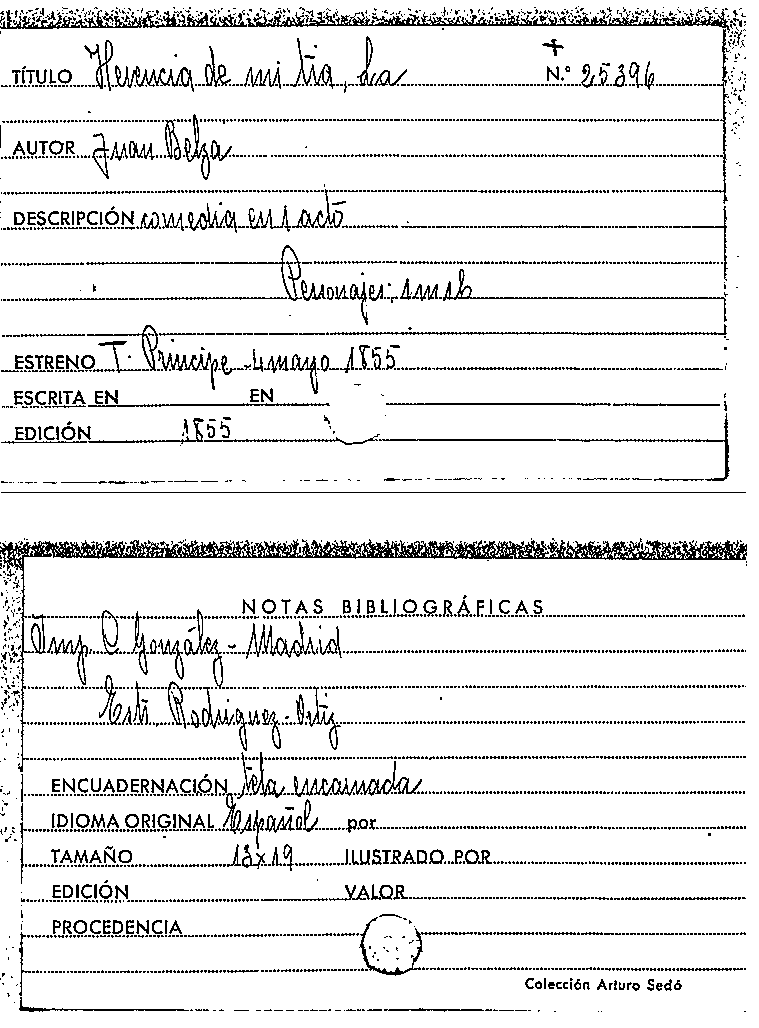 TÍTULO Herencia de mi tia, La + N.º 25396
AUTOR Juan Belza
DESCRIPCIÓN comedia en 1 acto
Personajes: 1m 1h
ESTRENO T. Principe - 4 mayo 1855
ESCRITA EN EN
EDICIÓN 1855
NOTAS BIBLIOGRÁFICAS
Imp C González - Madrid
Estr. Rodriguez - Ortiz
ENCUADERNACIÓN tela encarnada
IDIOMA ORIGINAL Español por
TAMAÑO 13x19 ILUSTRADO POR
EDICIÓN VALOR
PROCEDENCIA
Colección Arturo Sedó